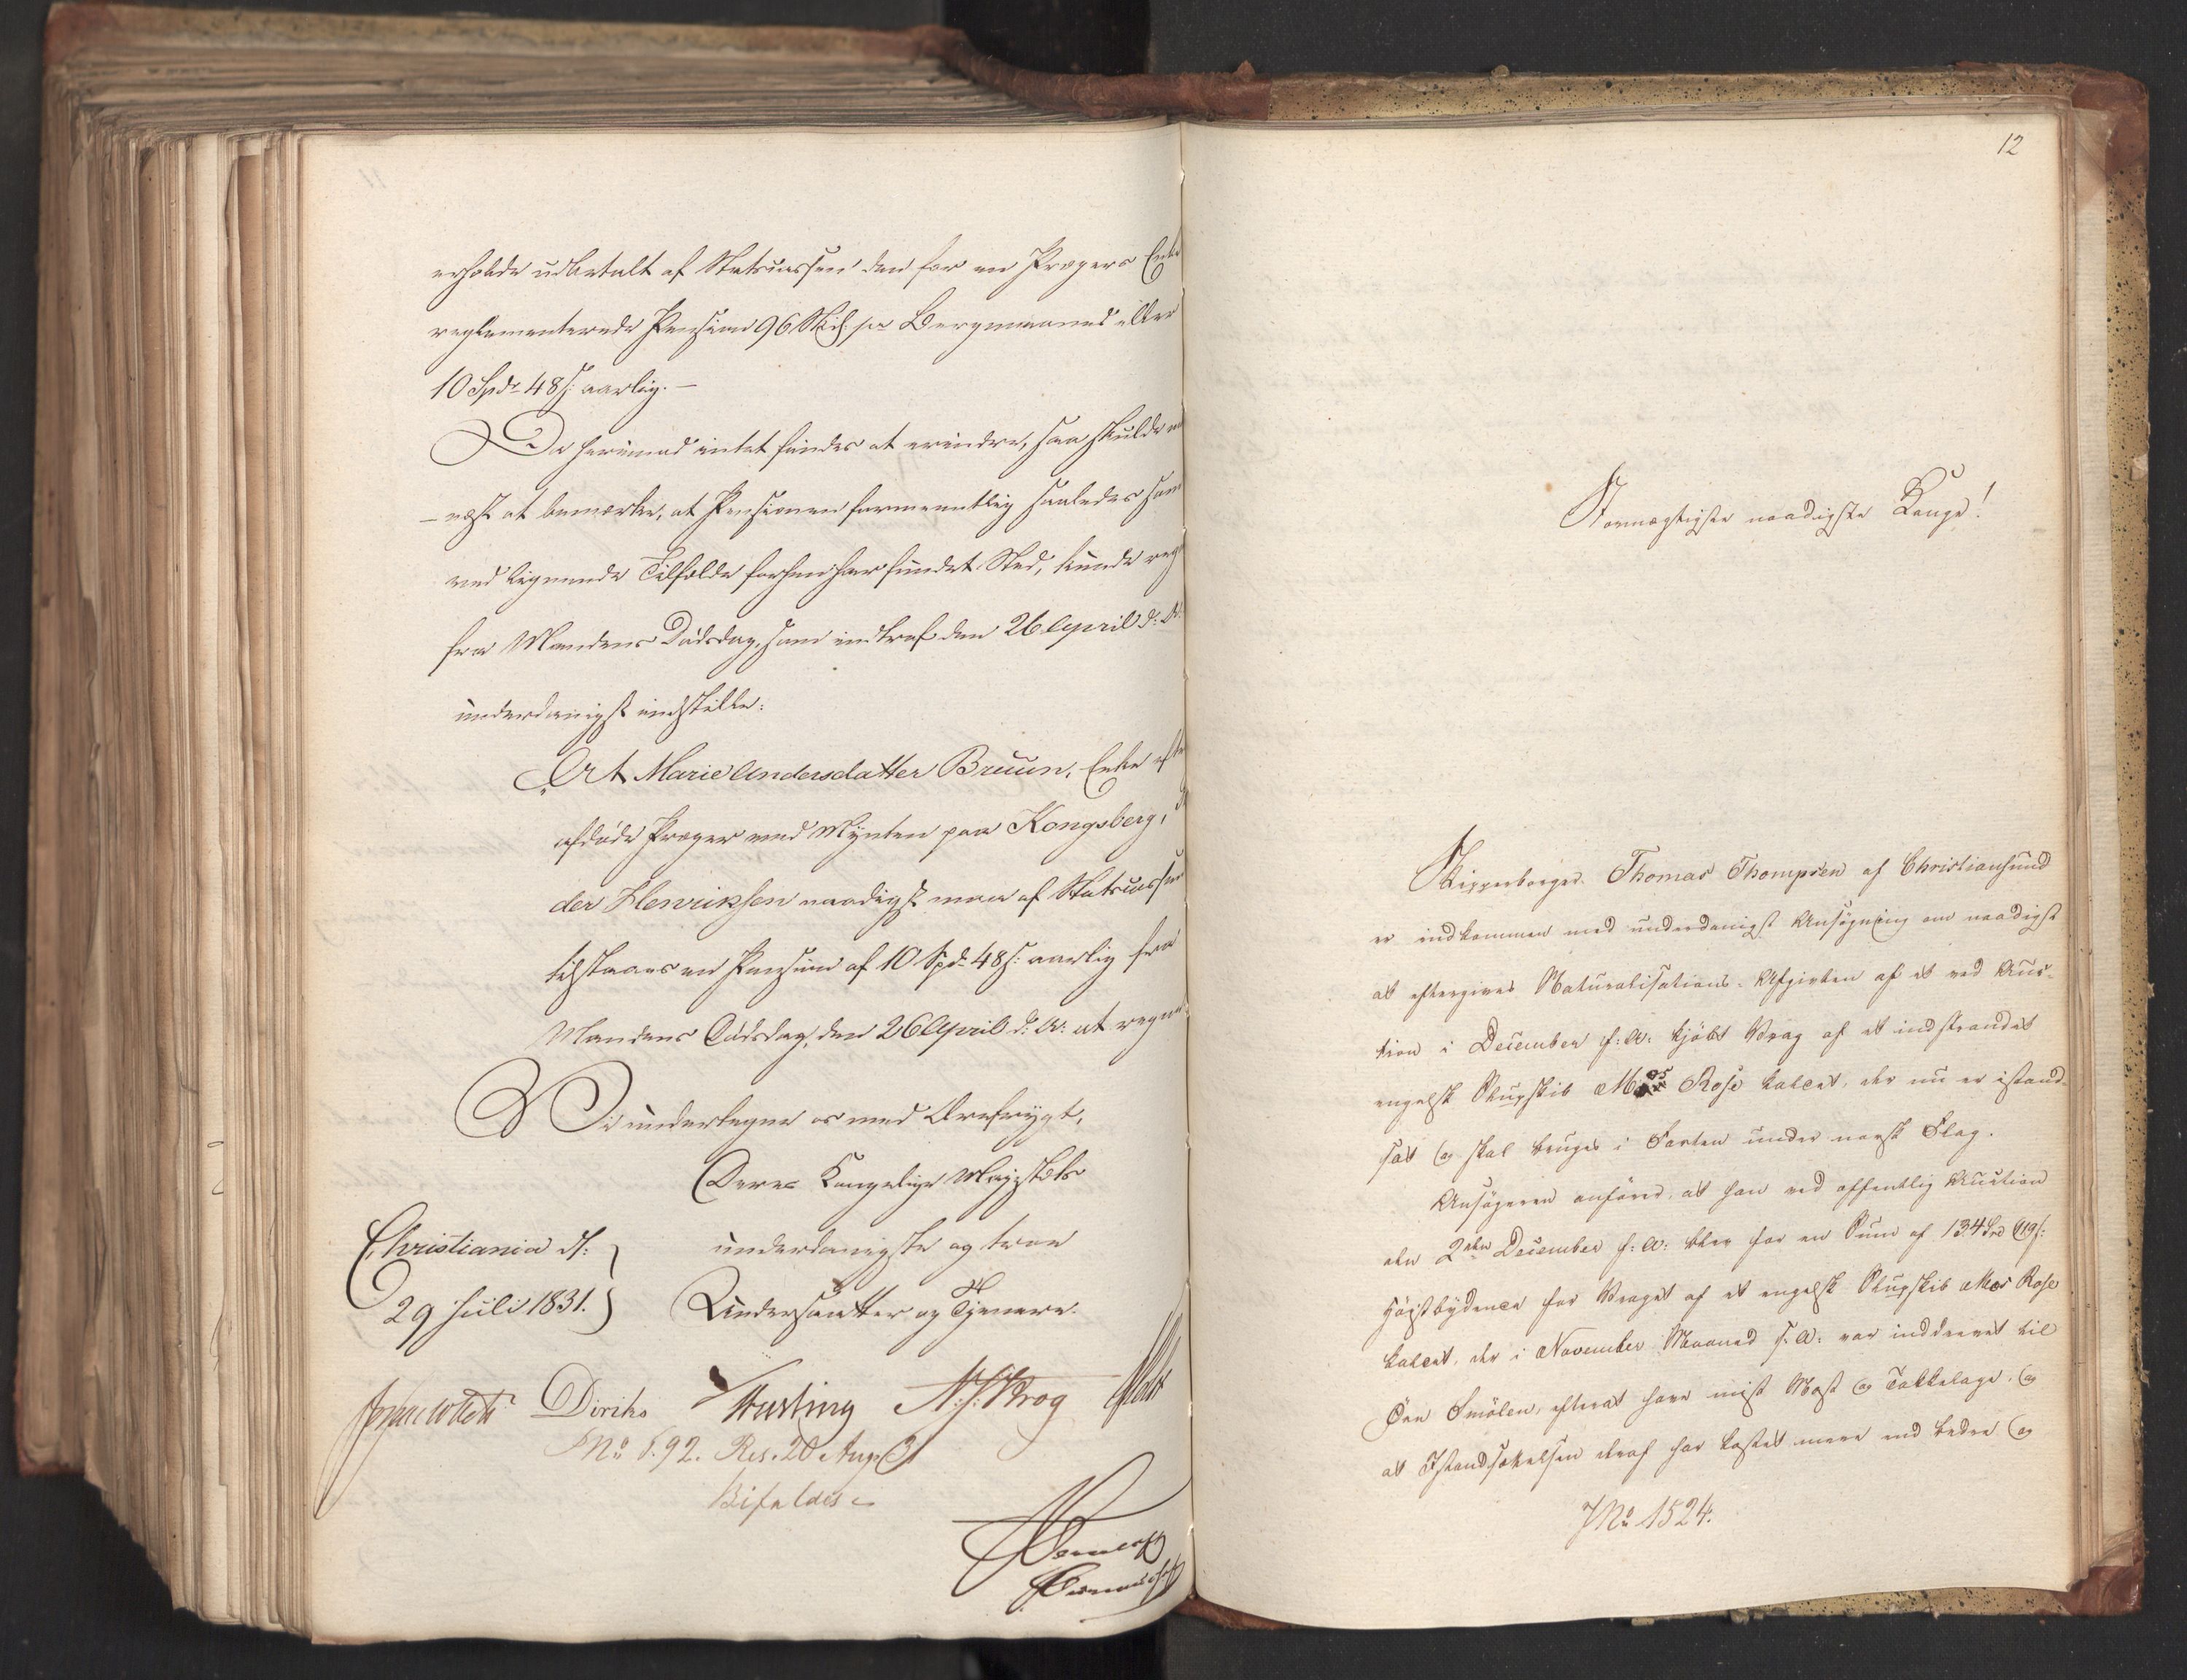 erholde udbetalt af Statscassen den for en Prægers Enke
reglementerede Pension 96 Skil. pr Bergmaaned eller
10 Spd. 48 s: aarlig. —
Da herimod intet findes at erindre, saa skulde vi
— næst at bemærke, at Pensionen formeentlig saaledes som
ved lignende Tilfælde forhen har fundet Sted, kunde
fra Mandens Dødsdag, som indtraf den 26 April d: A:
underdanigst indstille:
„At Marie Andersdatter Bruun, Enke efter
afdøde Præger ved Mynten paa Kongsberg,
der Henriksen naadigst maa af Statscassen
tilstaaes en Pension af 10 Spd. 48 s: aarlig fra
Mandens Dødsdag, den 26 April d: A: at regne
Vi undertegne os med Ærefrygt,
Deres Kongelige Majestæts
Christiania d.
underdanigste og troe
29 Juli 1831.
Undersaatter og Tjenere.
Diriks N. J. Krog
No 592. Res. 20 Aug 31
Bifaldes
12
Stormægtigste naadigste Konge!
Skipperborger Thomas Thompsen af Christiansund
er indkommen med underdanigst Ansøgning om naadigst
at eftergives Naturalisations-Afgivten af et ved Auc-
tion i December f: A: kjøbt Vrag af et indstrandet
engelsk Slupskib Mos Rose kaldet, der nu er istand-
sat og skal bruges i Farten under norsk Flag.
Ansøgeren anfører, at han ved offentlig Auction
den 2den December f: A: blev for en Sum af 134 Spd 119 s:
Højstbydende for Vraget af et engelsk Slupskib Mos Rose
kaldet, der i November Maaned f. A: var inddrevet til
Øen Smølen, efterat have mist Mast og Takkelage, og
at Istandsættelsen deraf har kostet mere end bedre og
JNo 1524.